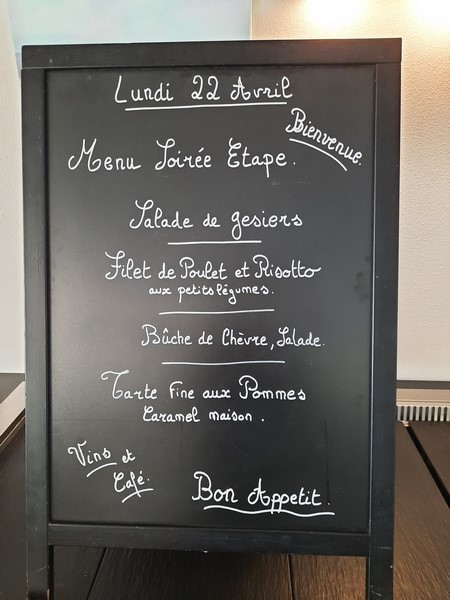 Lundi 22 Avril
Bienvenue.
Menu Soirée Etape.
Salade de gesiers
Filet de Poulet et Risotto
aux petits légumes.
Bûche de Chèvre, Salade.
Tarte Fine aux Pommes
Caramel maison.
Vins et
Café.
Bon Appetit.